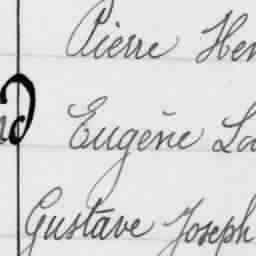 Pierre Hen
Eugène Lo
Gustave Joseph